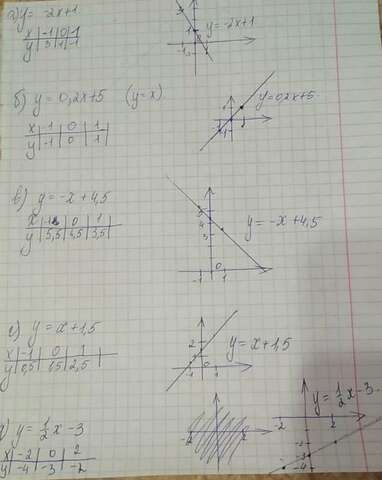 а) y = -2x+1.
x | -1 | 0 | 1
y | 3 | 1 | -1
y = -2x+1
б) y = 0,2x+5 (y=x)
x | -1 | 0 | 1
y | -1 | 0 | 1
y=0,2x+5
в) y = -x + 4,5
x | -1 | 0 | 1
y | 5,5 | 4,5 | 3,5
y = -x + 4,5
г) y = x + 1,5
x | -1 | 0 | 1
y | 0,5 | 1,5 | 2,5
y = x+1,5
д) y = 1/2 x - 3
x | -2 | 0 | 2
y | -4 | -3 | -2
y = 1/2 x - 3